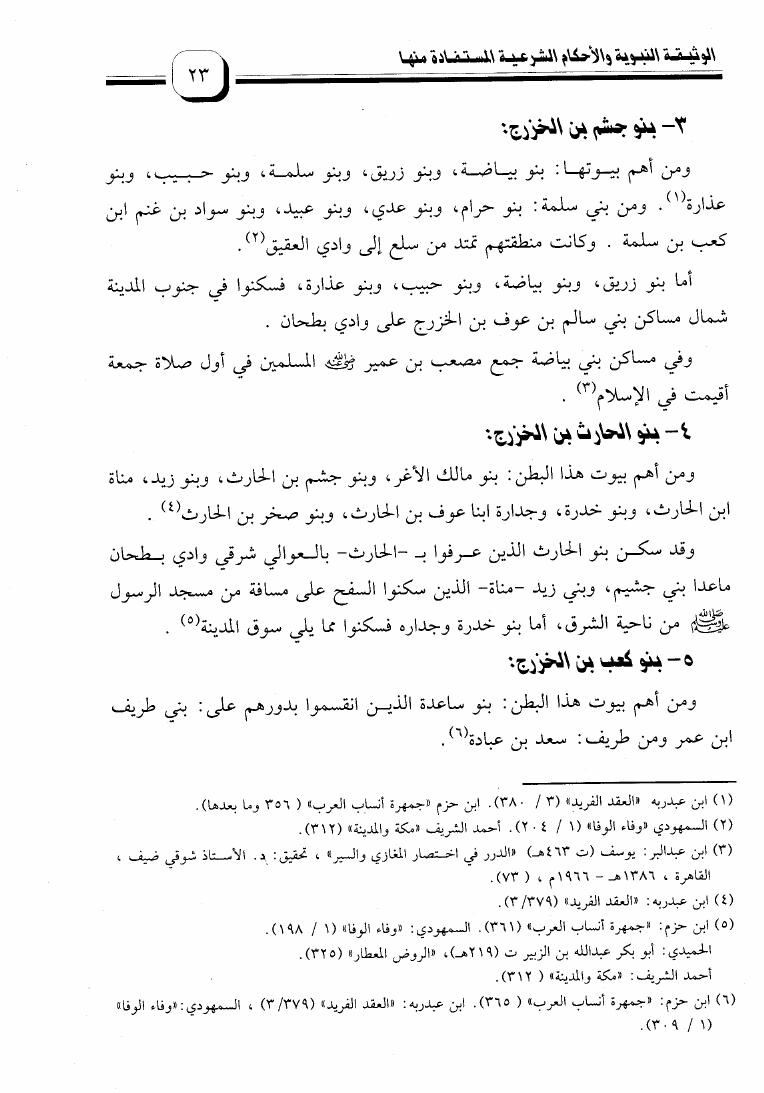 الوثيقة النبوية والأحكام الشرعية المستفادة منها
٢٣
٣- بنو جشم بن الخزرج:
ومن أهم بيوتها: بنو بياضة، وبنو زريق، وبنو سلمة، وبنو حبيب، وبنو
عذارة(١). ومن بني سلمة: بنو حرام، وبنو عدي، وبنو عبيد، وبنو سواد بن غنم ابن
كعب بن سلمة . وكانت منطقتهم تمتد من سلع إلى وادي العقيق(٢).
أما بنو زريق، وبنو بياضة، وبنو حبيب، وبنو عذارة، فسكنوا في جنوب المدينة
شمال مساكن بني سالم بن عوف بن الخزرج على وادي بطحان .
وفي مساكن بني بياضة جمع مصعب بن عمير رضي الله عنه المسلمين في أول صلاة جمعة
أقيمت في الإسلام(٣) .
٤- بنو الحارث بن الخزرج:
ومن أهم بيوت هذا البطن: بنو مالك الأغر، وبنو جشم بن الحارث، وبنو زيد، مناة
ابن الحارث، وبنو خدرة، وجدارة ابنا عوف بن الحارث، وبنو صخر بن الحارث(٤) .
وقد سكن بنو الحارث الذين عرفوا بـ -الحارث- بالعوالي شرقي وادي بطحان
ماعدا بني جشيم، وبني زيد -مناة- الذين سكنوا السفح على مسافة من مسجد الرسول
ﷺ من ناحية الشرق، أما بنو خدرة وجداره فسكنوا مما يلي سوق المدينة(٥) .
٥- بنو كعب بن الخزرج:
ومن أهم بيوت هذا البطن: بنو ساعدة الذين انقسموا بدورهم على: بني طريف
ابن عمر ومن طريف: سعد بن عبادة(٦).
(١) ابن عبدربه «العقد الفريد» (٣ / ٣٨٠). ابن حزم «جمهرة أنساب العرب» ( ٣٥٦ وما بعدها).
(٢) السمهودي «وفاء الوفا» (١ / ٢٠٤). أحمد الشريف «مكة والمدينة» (٣١٢).
(٣) ابن عبدالبر: يوسف (ت ٤٦٣هـ) «الدرر في اختصار المغازي والسير» ، تحقيق: د. الأستاذ شوقي ضيف ،
القاهرة ، ١٣٨٦هـ - ١٩٦٦م ، ( ٧٣).
(٤) ابن عبدربه: «العقد الفريد» (٣/٣٧٩).
(٥) ابن حزم: «جمهرة أنساب العرب» (٣٦١). السمهودي: «وفاء الوفا» (١ / ١٩٨).
الحميدي: أبو بكر عبدالله بن الزبير ت (٢١٩هـ)، «الروض المعطار» (٣٢٥).
أحمد الشريف: «مكة والمدينة» ( ٣١٢).
(٦) ابن حزم: «جمهرة أنساب العرب» ( ٣٦٥). ابن عبدربه: «العقد الفريد» (٣/٣٧٩) ، السمهودي:«وفاء الوفا»
(١ / ٣٠٩).